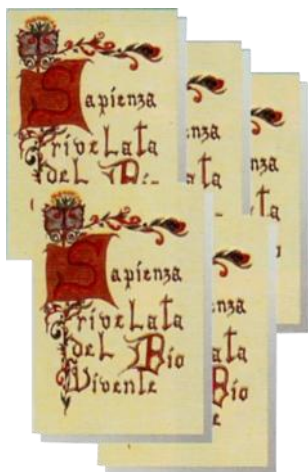 Sapienza
rivelata
del Dio
Sapienza
rivelata
del Dio
Vivente